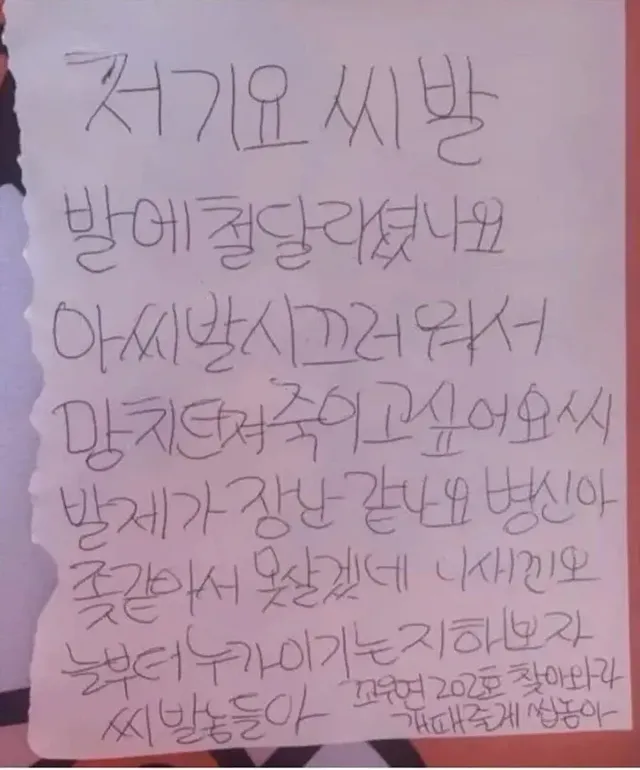 저기요 씨발
발에 철달리셨나요
아씨발시끄러워서
망치던져죽이고싶어요씨
발제가 장난 같나요 병신아
좆같아서 못살겠네 니새낀오
늘부터 누가이기는지하보자
씨발놈들아
꼬우면 202호 찾아와라
개패줄게 씹놈아